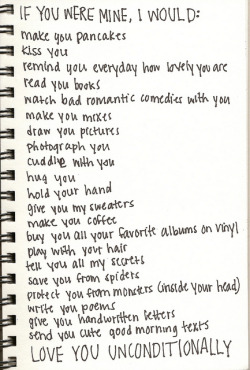 IF YOU WERE MINE, I WOULD:
make you pancakes
kiss you
remind you everyday how lovely you are
read you books
watch bad romantic comedies with you
make you mixes
draw you pictures
photograph you
cuddle with you
hug you
hold your hand
give you my sweaters
make you coffee
buy you all your favorite albums on vinyl
play with your hair
tell you all my secrets
save you from spiders
protect you from monsters (inside your head)
write you poems
give you handwritten letters
send you cute good morning texts
LOVE YOU UNCONDITIONALLY